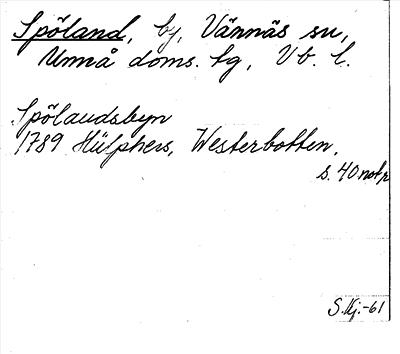 Spöland, by, Vännäs sn,
Umeå doms. tg, Vb. l.
Spölandsbyn
1789 Hülphers, Westerbotten,
s. 40 not p
S.Kj.-61